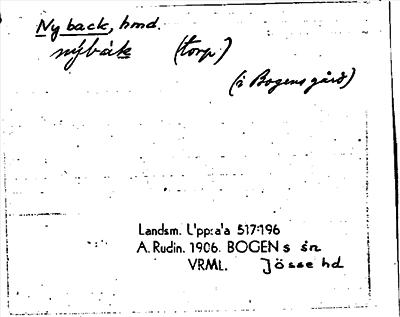 Ny back, hmd.
nýbák (torp)
(å Bogens gård)
Landsm. U'pp:a'a 517:196
A. Rudin. 1906. BOGENs sn
VRML. Jösse hd